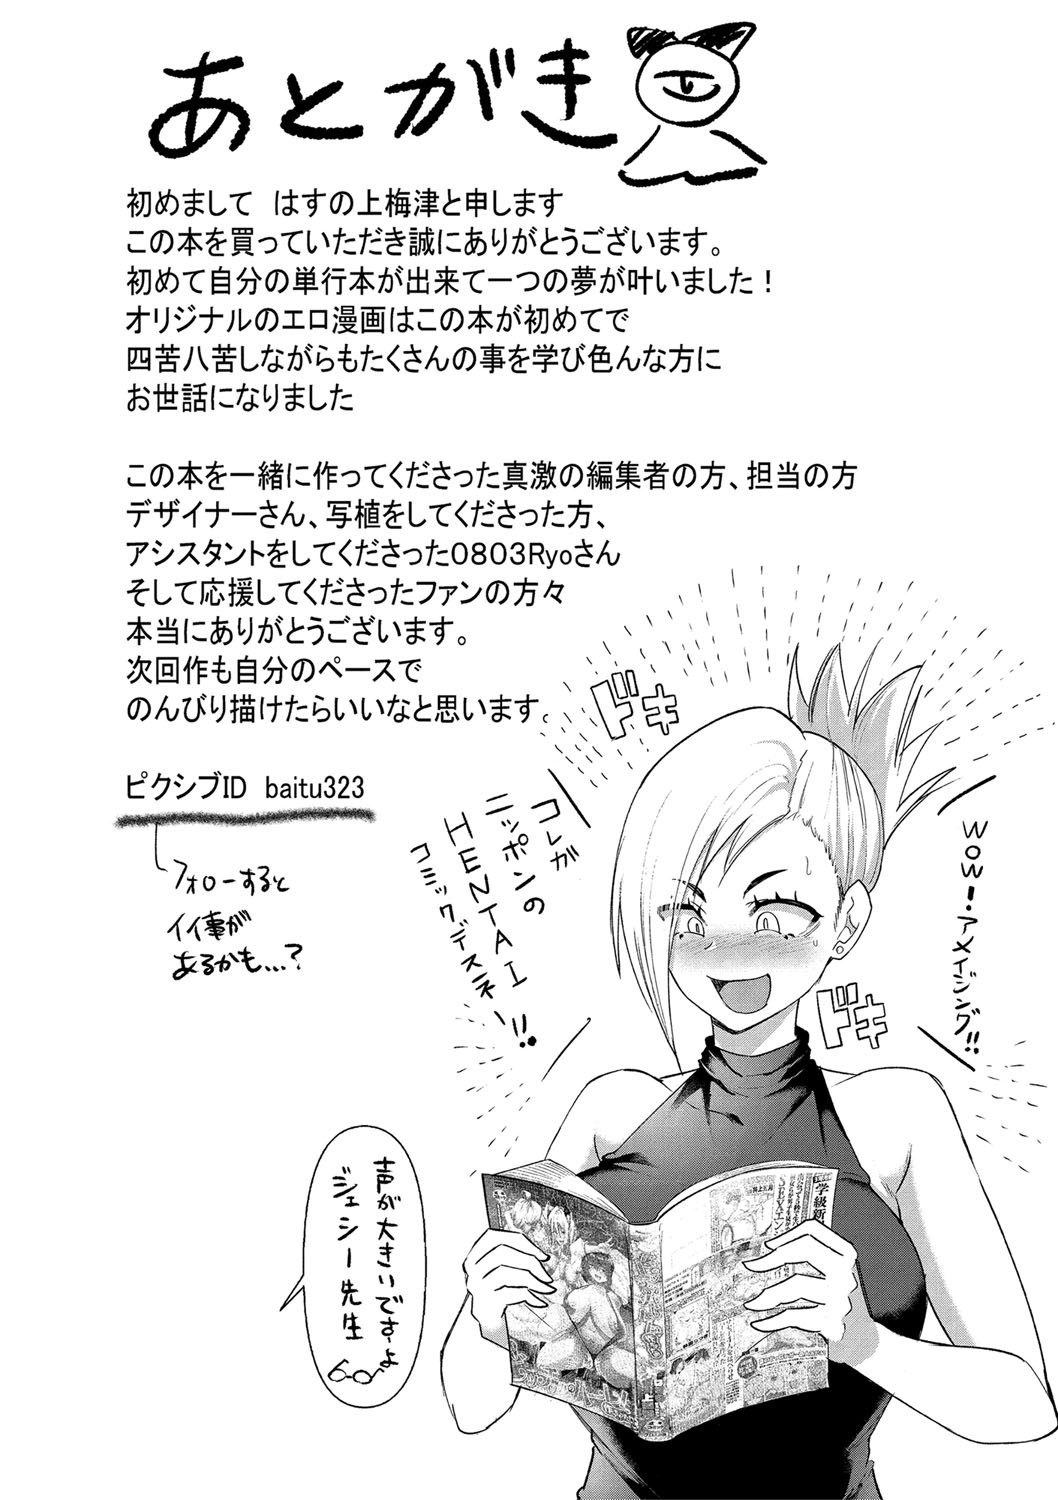 あとがき
初めまして　はすの上梅津と申します
この本を買っていただき誠にありがとうございます。
初めて自分の単行本が出来て一つの夢が叶いました！
オリジナルのエロ漫画はこの本が初めてで
四苦八苦しながらもたくさんの事を学び色んな方に
お世話になりました
この本を一緒に作ってくださった真激の編集者の方、担当の方
デザイナーさん、写植をしてくださった方、
アシスタントをしてくださった０８０３Ryoさん
そして応援してくださったファンの方々
本当にありがとうございます。
次回作も自分のペースで
のんびり描けたらいいなと思います。
ピクシブID　baitu323
フォローすると
イイ事が
あるかも…？
ドキ
WOW！アメイジング!!
コレが
ニッポンの
HENTAI
コミックデスネー!!
ドキ
声が大きいですよ
ジェシー先生
学級新
SEXエン